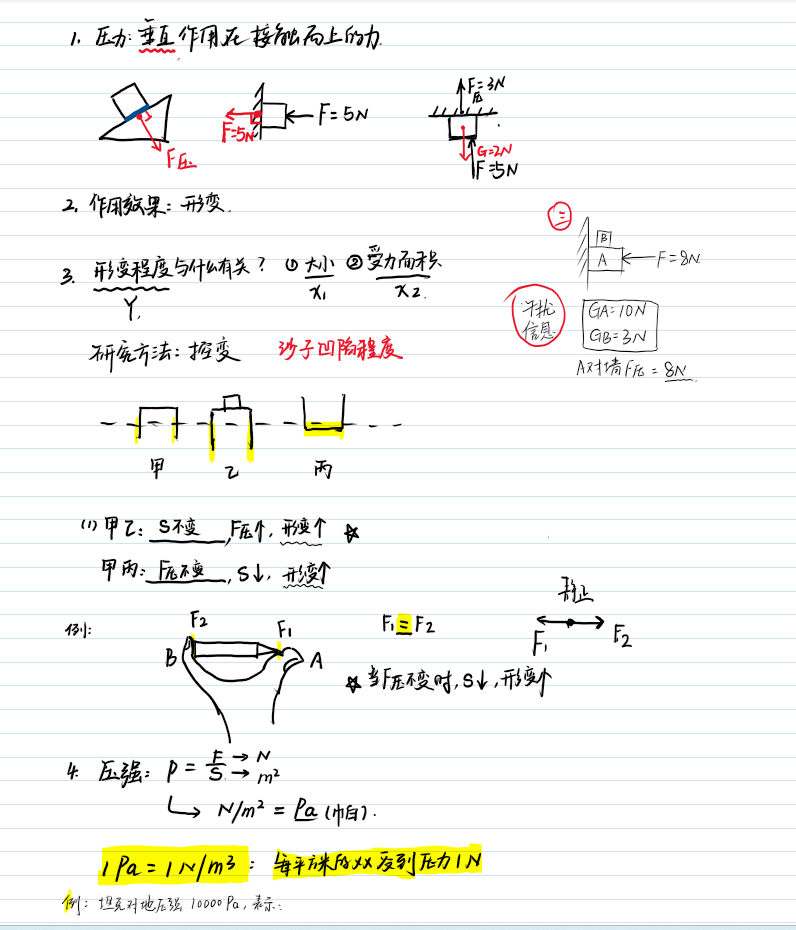 1. 压力: 垂直作用在接触面上的力.
F压
F=5N
F=5N
F压=3N
G=2N
F=5N
2. 作用效果: 形变.
3. 形变程度与什么有关? ① 大小 ② 受力面积
Y.
x1
x2.
研究方法: 控变
沙子凹陷程度
二
B
A
F=8N
干扰信息
GA=10N
GB=3N
A对墙F压=8N
甲
乙
丙
(1) 甲乙: S不变, F压↑, 形变↑ ☆
甲丙: F压不变, S↓, 形变↑
例:
F2
F1
B
A
F1=F2
静止
F1
F2
☆ 当F压不变时, S↓, 形变↑
4. 压强: P = F/S → N → m²
↳ N/m² = Pa (帕).
1Pa = 1N/m³: 每平方米的xx受到压力1N
例: 坦克对地压强 10000Pa, 表示: